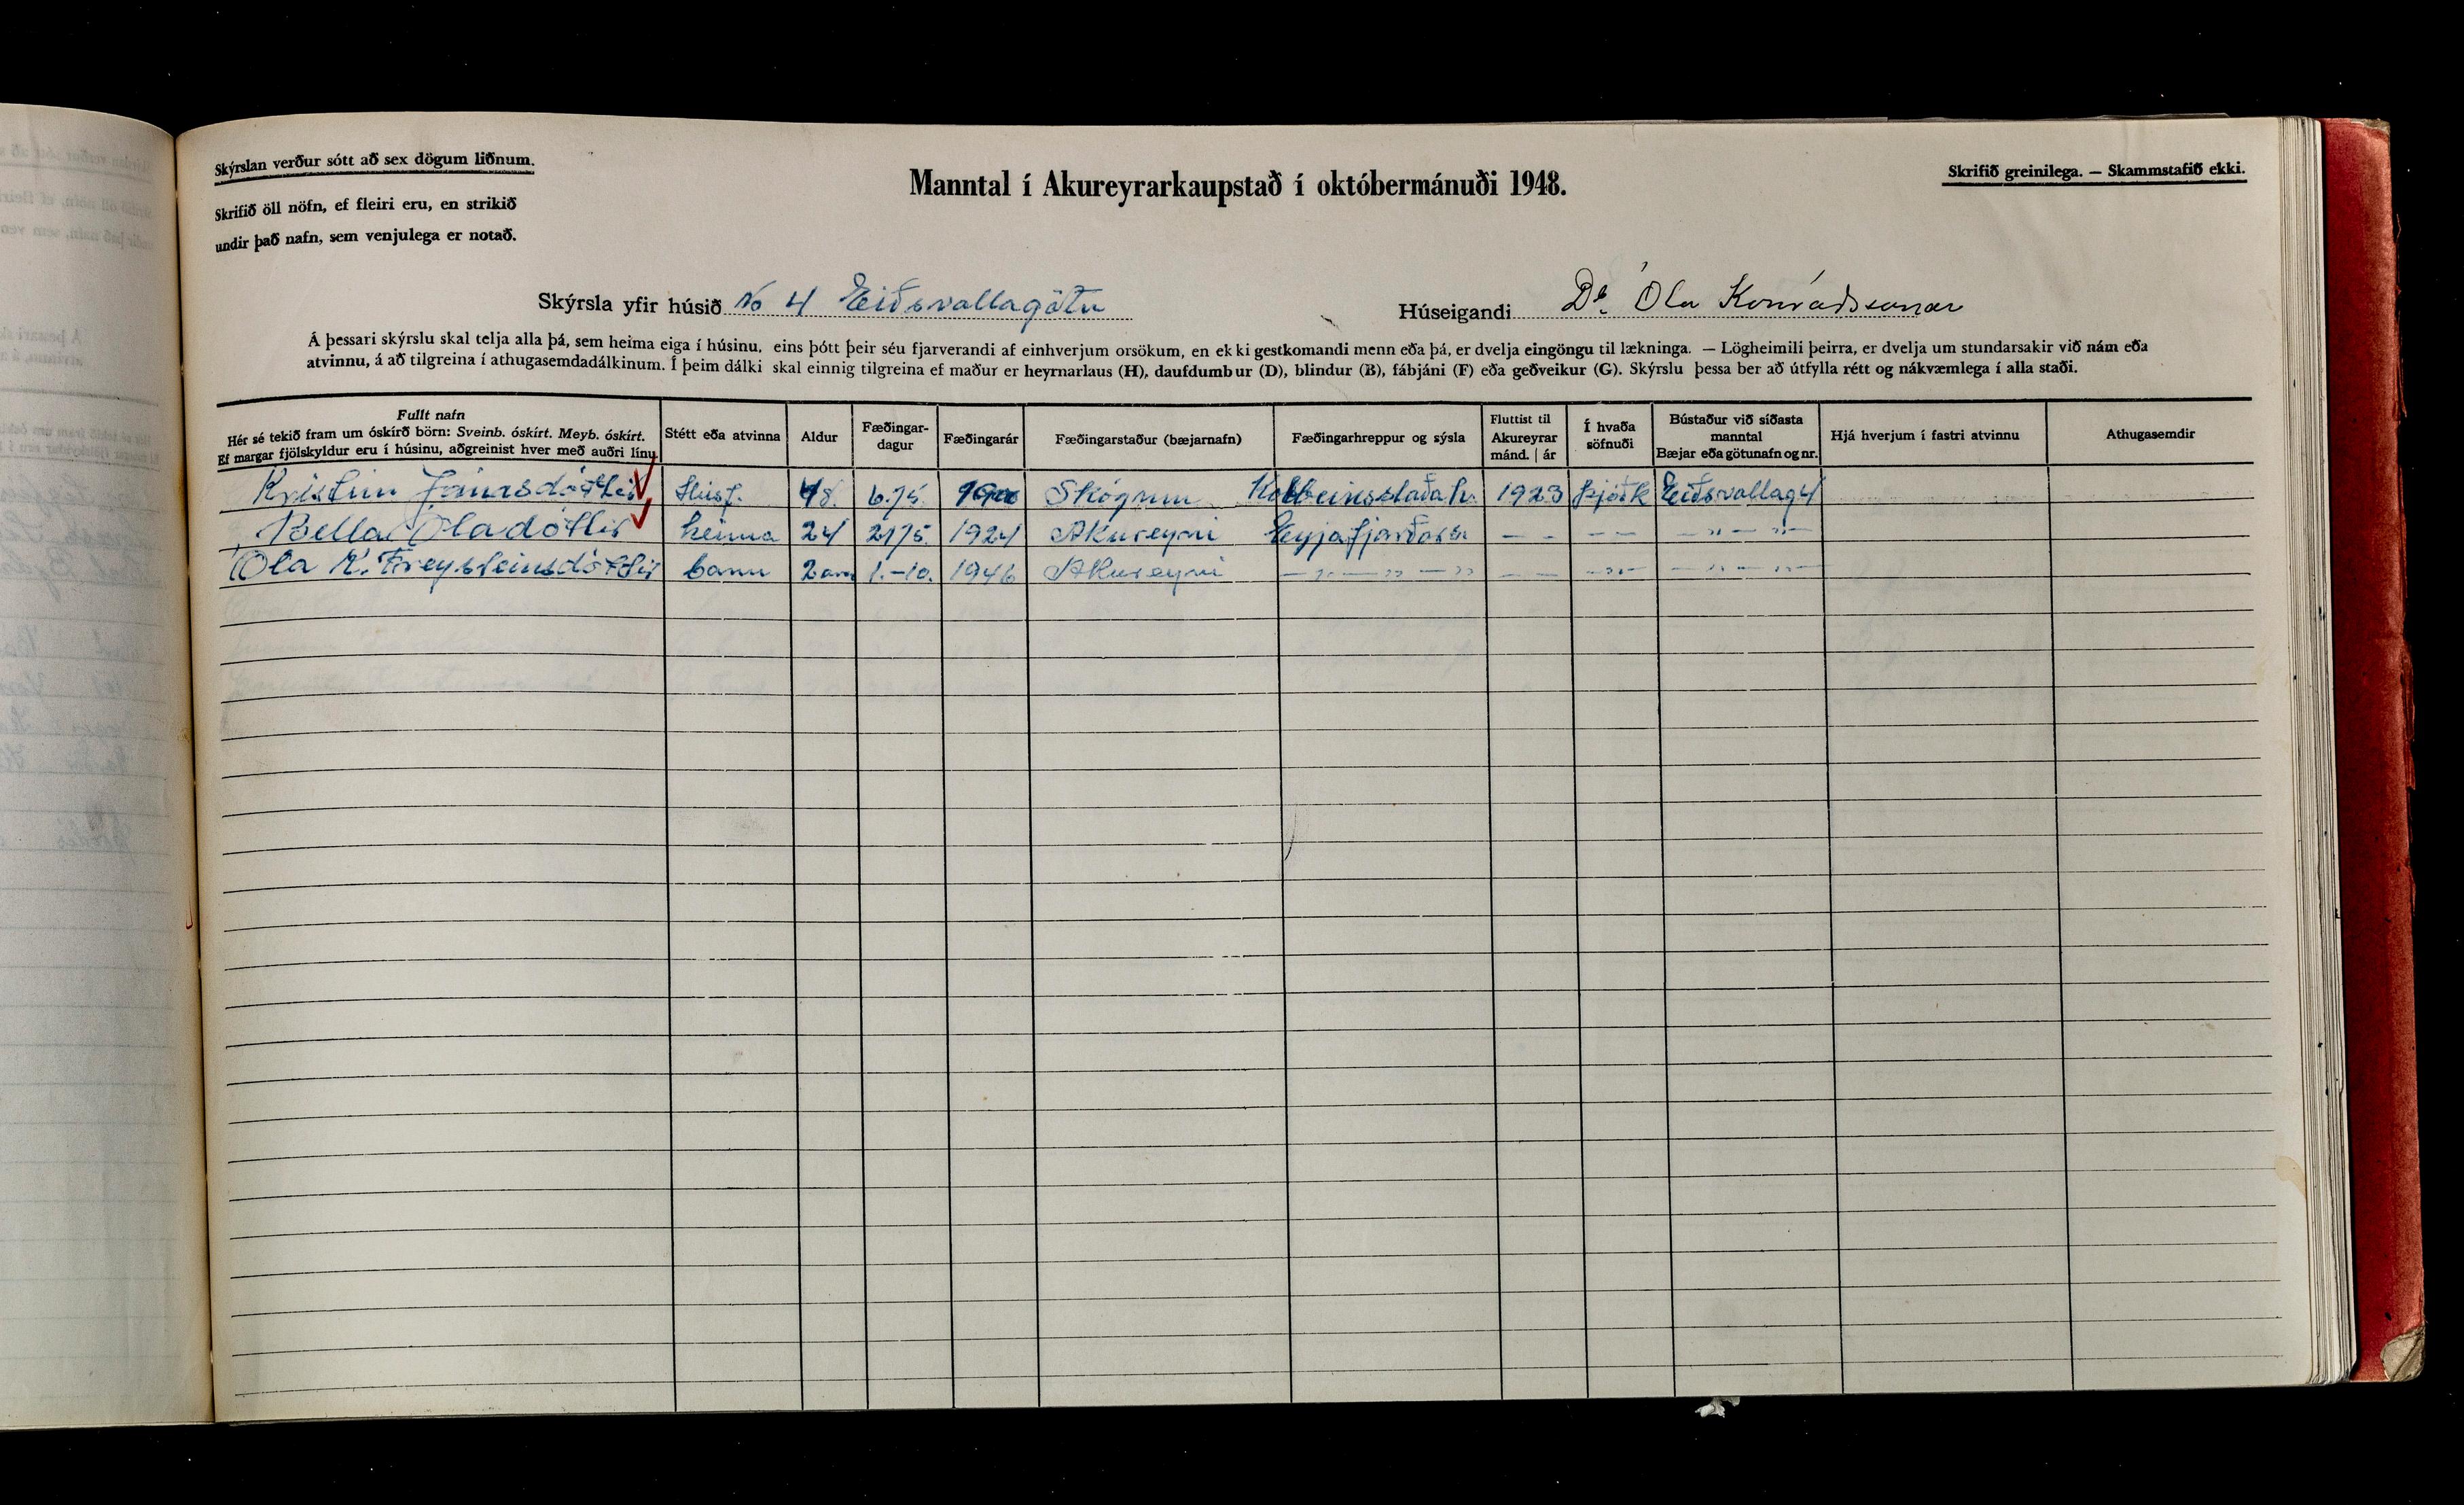 Skýrslan verður sótt að sex dögum liðnum.
Skrifið öll nöfn, ef fleiri eru, en strikið
undir það nafn, sem venjulega er notað.
Manntal í Akureyrarkaupstað í októbermánuði 1948.
Skrifið greinilega. — Skammstafið ekki.
Skýrsla yfir húsið No 4 Eiðsvallagötu
Húseigandi Db. Óla Konráðssonar
Á þessari skýrslu skal telja alla þá, sem heima eiga í húsinu, eins þótt þeir séu fjarverandi af einhverjum orsökum, en ekki gestkomandi menn eða þá, er dvelja eingöngu til lækninga. — Lögheimili þeirra, er dvelja um stundarsakir við nám eða
atvinnu, á að tilgreina í athugasemdadálkinum. Í þeim dálki skal einnig tilgreina ef maður er heyrnarlaus (H), daufdumbur (D), blindur (B), fábjáni (F) eða geðveikur (G). Skýrslu þessa ber að útfylla rétt og nákvæmlega í alla staði.
Fullt nafn
Hér sé tekið fram um óskírð börn: Sveinb. óskírt. Meyb. óskírt.
Ef margar fjölskyldur eru í húsinu, aðgreinist hver með auðri línu.
Stétt eða atvinna
Aldur
Fæðingar-
dagur
Fæðingarár
Fæðingarstaður (bæjarnafn)
Fæðingarhreppur og sýsla
Fluttist til
Akureyrar
mánd. | ár
Í hvaða
söfnuði
Bústaður við síðasta
manntal
Bæjar eða götunafn og nr.
Hjá hverjum í fastri atvinnu
Athugasemdir
Kristín Jónasdóttir Húsf. 48. 6./5. 1900 Skógum Kolbeinsstaðahr. 1923 Þjóðk Eiðsvallag 4
Bella Óladóttir heima 24 21/5. 1924 Akureyri Eyjafjarðars. — - — — — „ — „ —
Óla K. Freysteinsdóttir barn 2 ára 1.-10. 1946 Akureyri — „ — „ — „ — — — „ — — „ — „ —